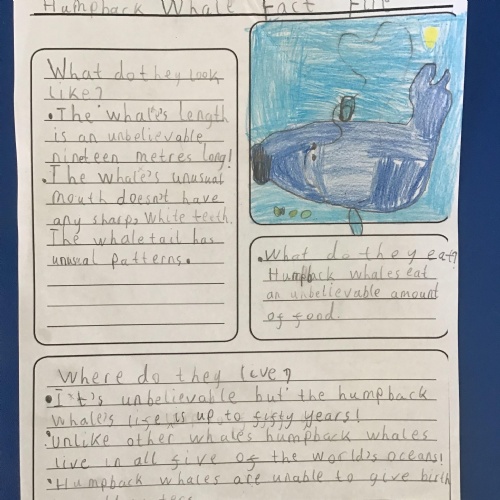 Humpback Whale Fact File
What do they look
like?
• The whale's length
is an unbelievable
nineteen metres long!
• The whale's unusual
mouth doesn't have
any sharp, white teeth.
The whale tail has
unusual patterns.
• What do they eat?
Humpback whales eat
an unbelievable amount
of food.
Where do they live?
• It's unbelievable but the humpback
whale's life is up to fifty years!
• Unlike other whales humpback whales
live in all five of the world's oceans!
• Humpback whales are unable to give birth